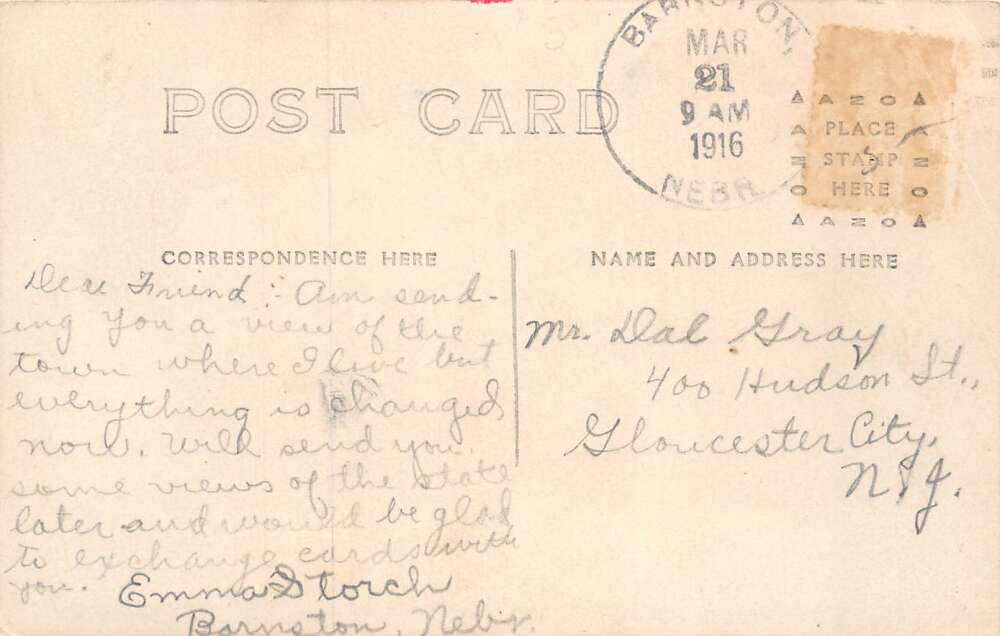 BARNSTON,
MAR
21
9 AM
1916
NEBR.
POST CARD
AZO
PLACE
STAMP
HERE
AZO
CORRESPONDENCE HERE
NAME AND ADDRESS HERE
Dear Friend:- Am send-
ing you a view of the
town where I live but
everything is changed
now. Will send you
some views of the state
later and would be glad
to exchange cards with
you. Emma Storch
Barnston, Nebr.
Mr. Dal Gray
400 Hudson St.,
Gloucester City,
N. J.